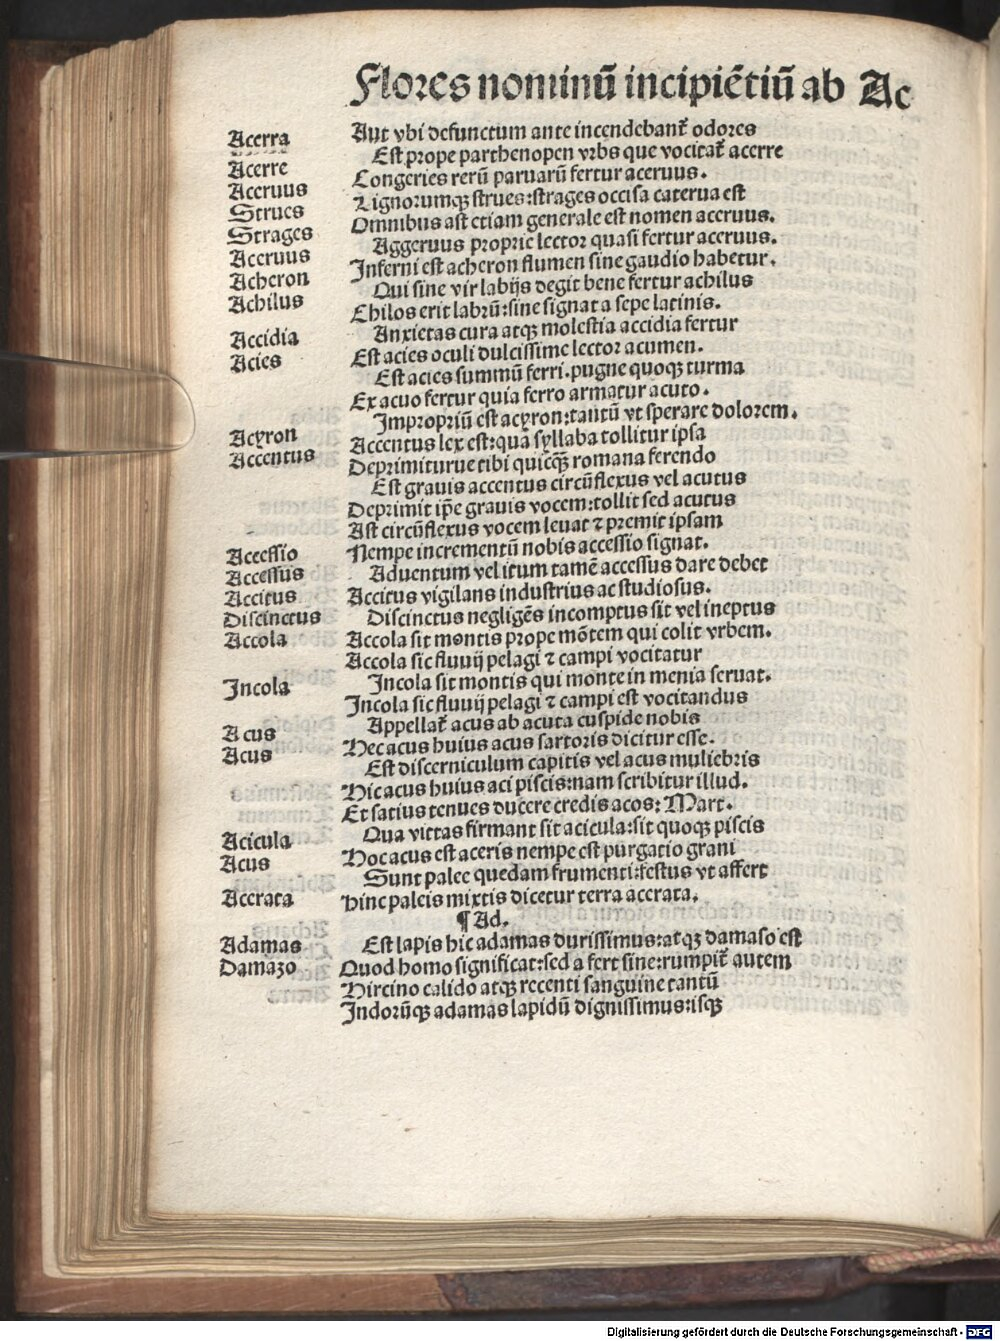 Flores nominū incipiētiū ab Ac
Acerra Aut vbi defunctum ante incendebant᷑ odores
Acerre Est prope parthenopen vrbs que vocitat᷑ acerre
Aceruus Congeries rerū paruarū fertur aceruus.
Strues Lignorumqꝫ strues:strages occisa caterua est
Strages Omnibus ast etiam generale est nomen aceruus.
Aceruus Aggeruus proprie lector quasi fertur aceruus.
Acheron Inferni est acheron flumen sine gaudio habetur.
Achilus Qui sine vir labijs degit bene fertur achilus
Chilos erit labrū:sine signat a sepe latinis.
Accidia Anxietas cura atqꝫ molestia accidia fertur
Acies Est acies oculi dulcissime lector acumen.
Est acies summū ferri.pugne quoqꝫ turma
Ex acuo fertur quia ferro armatur acuto.
Acyron Impropriū est acyron:tantū vt sperare dolorem.
Accentus Accentus lex est:qua syllaba tollitur ipsa
Deprimiturue tibi quicqꝫ romana ferendo
Est grauis accentus circūflexus vel acutus
Deprimit ip̄e grauis vocem:tollit sed acutus
Ast circūflexus vocem leuat ⁊ premit ipsam
Accessio Nempe incrementū nobis accessio signat.
Accessus Aduentum vel itum tamē accessus dare debet
Accitus Accitus vigilans industrius ac studiosus.
Discinctus Discinctus negligēs incomptus sit vel ineptus
Accola Accola sit montis prope mōtem qui colit vrbem.
Accola sic fluuij pelagi ⁊ campi vocitatur
Incola Incola sit montis qui monte in menia seruat.
Incola sic fluuij pelagi ⁊ campi est vocitandus
Acus Appellat᷑ acus ab acuta cuspide nobis
Acus Hec acus huius acus sartoris dicitur esse.
Est discerniculum capitis vel acus muliebris
Hic acus huius aci piscis:nam scribitur illud.
Et satius tenues ducere credis acos: Mart.
Acicula Qua vittas firmant sit acicula:sit quoqꝫ piscis
Acus Hoc acus est aceris nempe est purgatio grani
Sunt palee quedam frumenti:festus vt affert
Acerata Hinc paleis mixtis dicetur terra acerata.
¶ Ad.
Adamas Est lapis hic adamas durissimus:atqꝫ damaso est
Damazo Quod homo significat:sed a fert sine:rumpit᷑ autem
Hircino calido atqꝫ recenti sanguine tantū
Indorūqꝫ adamas lapidū dignissimus:isqꝫ
Digitalisierung gefördert durch die Deutsche Forschungsgemeinschaft - DFG